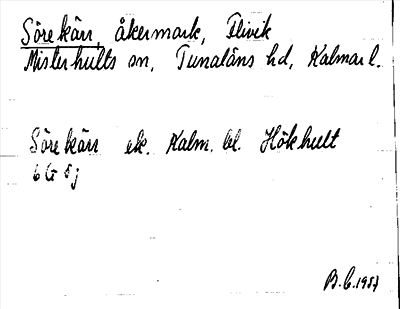 Sörekärr, åkermark, Flivik
Misterhults sn, Tunaläns hd, Kalmar l.
Sörekärr ek. Kalm. bl. Hökhult
6 G 8 j
B.G. 1957